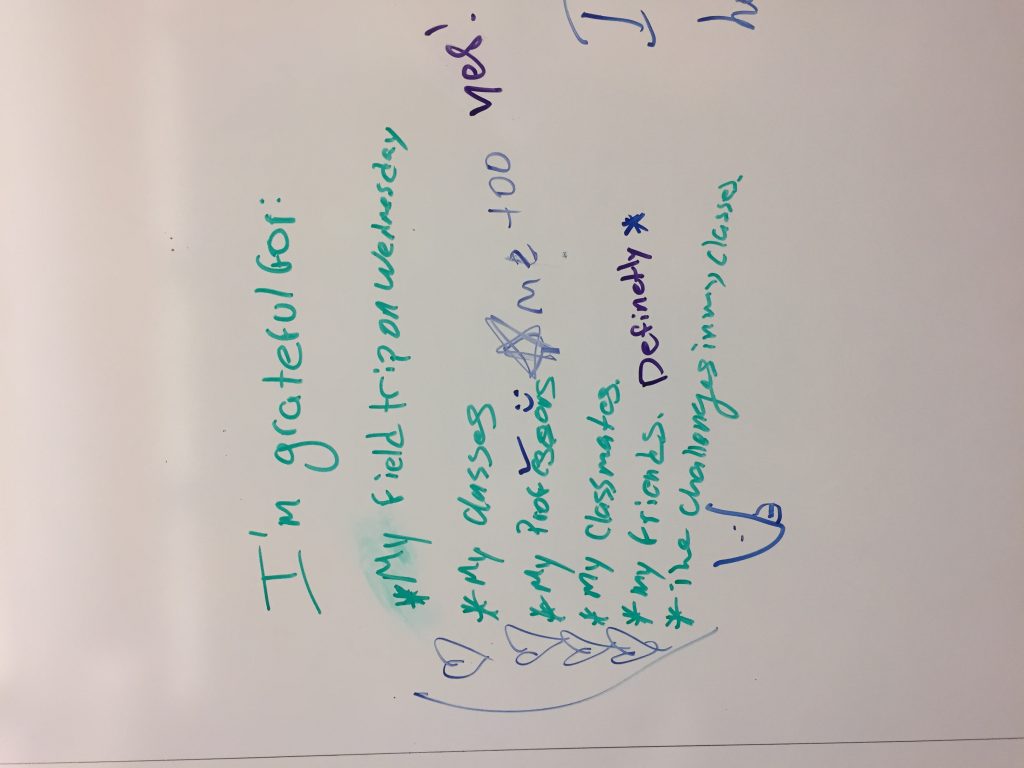 I'm grateful for:
*My field trip on Wednesday
*My classes yes!
*My Professors Me too
*My Classmates.
*my friends. Definetly *
*The challenges in my classes.
I